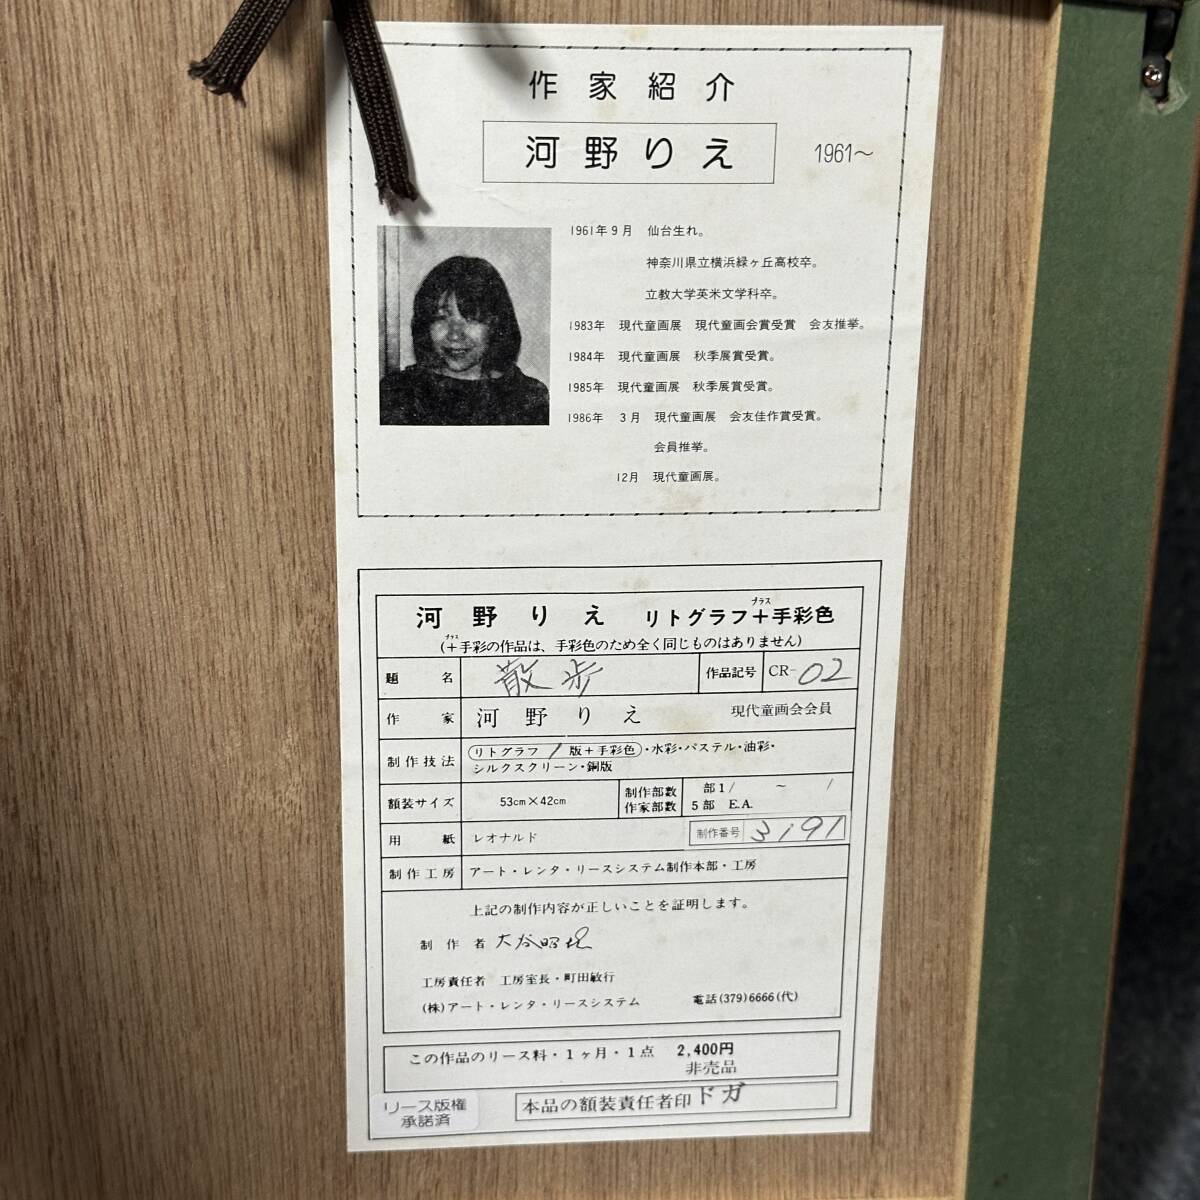 作家紹介
河野りえ 1961〜
1961年9月 仙台生れ。
神奈川県立横浜緑ヶ丘高校卒。
立教大学英米文学科卒。
1983年 現代童画展 現代童画会賞受賞 会友推挙。
1984年 現代童画展 秋季展賞受賞。
1985年 現代童画展 秋季展賞受賞。
1986年 3月 現代童画展 会友佳作賞受賞。
会員推挙。
12月 現代童画展。
河野りえ リトグラフ+プラス手彩色
(+プラス手彩の作品は、手彩色のため全く同じものはありません)
題名 散歩 作品記号 CR-02
作家 河野りえ 現代童画会会員
制作技法 リトグラフ 1 版+手彩色・水彩・パステル・油彩・
シルクスクリーン・銅版
額装サイズ 53cm×42cm 制作部数 部1/ 〜 /
作家部数 5部 E.A.
用紙 レオナルド 制作番号 3191
制作工房 アート・レンタ・リースシステム制作本部・工房
上記の制作内容が正しいことを証明します。
制作者
工房責任者 工房室長・町田敏行
(株)アート・レンタ・リースシステム 電話(379)6666(代)
この作品のリース料・1ヶ月・1点 2,400円
非売品
リース版権
承諾済
本品の額装責任者印 ドガ